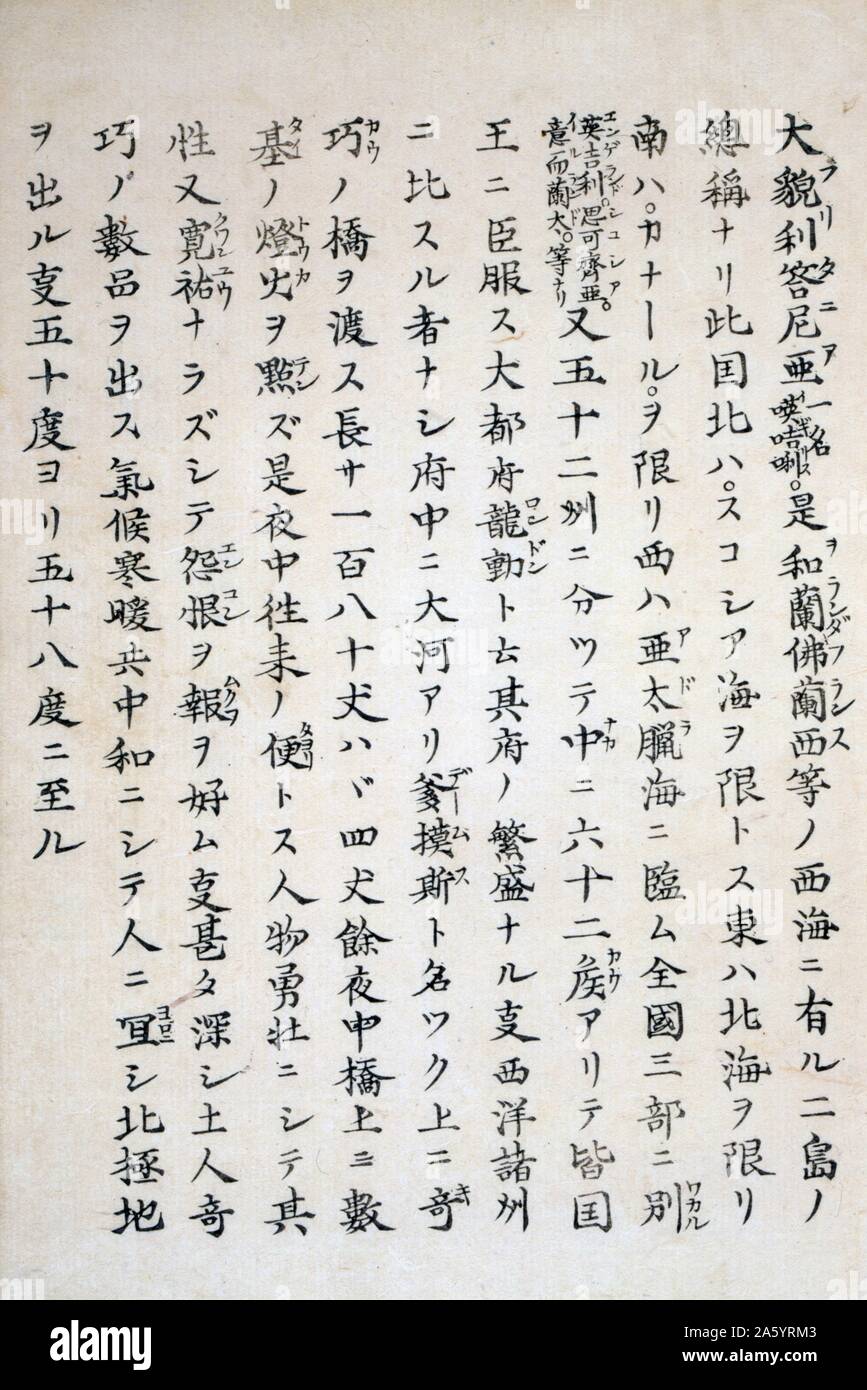 大貌利答尼亜一名喚咭唎。是和蘭佛蘭西等ノ西海ニ有ル二島ノ
總稱ナリ此国北ハ。スコシア海ヲ限トス東ハ北海ヲ限リ
南ハ。カナール。ヲ限リ西ハ亜太臘海ニ臨ム全國三部ニ別
英吉利。思可齊亜。意而蘭太。等ナリ又五十二州ニ分ツテ中ニ六十二侯アリテ皆国
王ニ臣服ス大都府龍動ト云其府ノ繁盛ナル支西洋諸州
ニ比スル者ナシ府中ニ大河アリ爹摸斯ト名ツク上ニ奇
巧ノ橋ヲ渡ス長サ一百八十丈ハヾ四丈餘夜中橋上ニ數
基ノ燈火ヲ點ズ是夜中往来ノ便トス人物勇壮ニシテ其
性又寛祐ナラズシテ怨恨ヲ報ヲ好ム支甚タ深シ土人奇
巧ノ數品ヲ出ス氣候寒暖共中和ニシテ人ニ冝シ北極地
ヲ出ル支五十度ヨリ五十八度ニ至ル
alamy
Image ID: 2A5YRM3
www.alamy.com